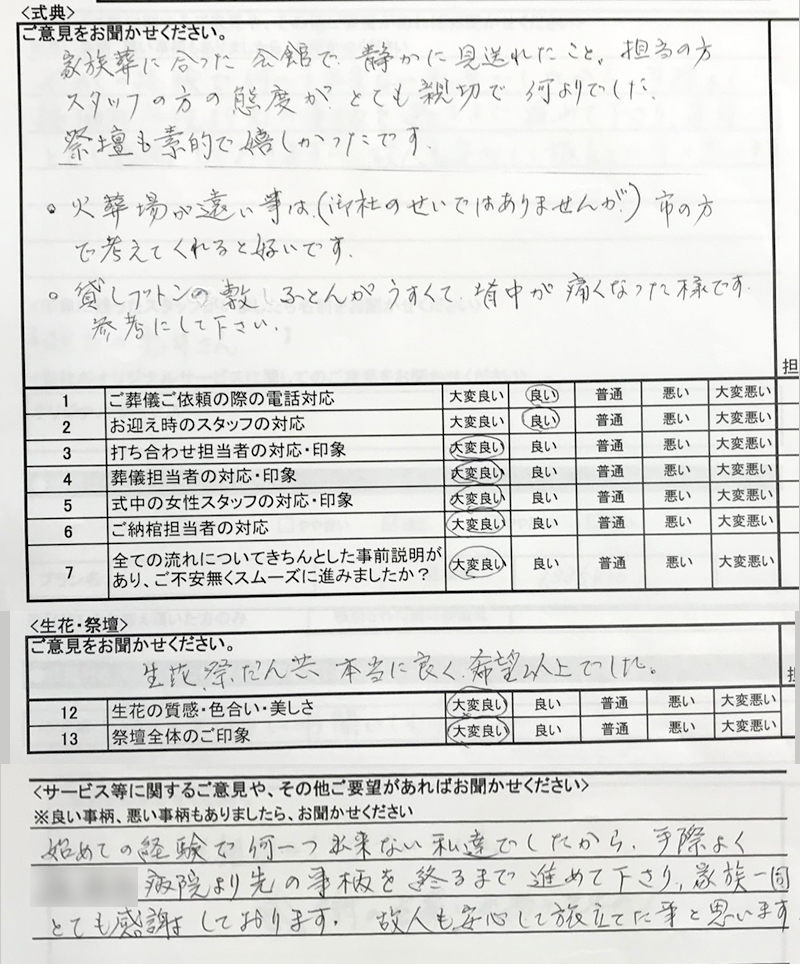 <式典>
ご意見をお聞かせください。
家族葬に合った会館で、静かに見送れたこと。担当の方
スタッフの方の態度が、とても親切で何よりでした。
祭壇も素的で嬉しかったです。
。火葬場が遠い事は、(御社のせいではありませんが、)市の方
で考えてくれると好いです。
。貸しフットンの敷しふとんがうすくて、背中が痛くなった様です。
参考にして下さい。
担
1 ご葬儀ご依頼の際の電話対応 大変良い 良い 普通 悪い 大変悪い
2 お迎え時のスタッフの対応 大変良い 良い 普通 悪い 大変悪い
3 打ち合わせ担当者の対応・印象 大変良い 良い 普通 悪い 大変悪い
4 葬儀担当者の対応・印象 大変良い 良い 普通 悪い 大変悪い
5 式中の女性スタッフの対応・印象 大変良い 良い 普通 悪い 大変悪い
6 ご納棺担当者の対応 大変良い 良い 普通 悪い 大変悪い
7 全ての流れについてきちんとした事前説明が
あり、ご不安無くスムーズに進みましたか？ 大変良い 良い 普通 悪い 大変悪い
<生花・祭壇>
ご意見をお聞かせください。
生花、祭だん共 本当に良く、希望以上でした。
12 生花の質感・色合い・美しさ 大変良い 良い 普通 悪い 大変悪い
13 祭壇全体のご印象 大変良い 良い 普通 悪い 大変悪い
<サービス等に関するご意見や、その他ご要望があればお聞かせください>
※良い事柄、悪い事柄もありましたら、お聞かせください
始めての経験で何一つ出来ない私達でしたから、手際よく
病院より先の事柄を終るまで進めて下さり、家族一同
とても感謝はしております。故人も安心して旅立てた事と思います